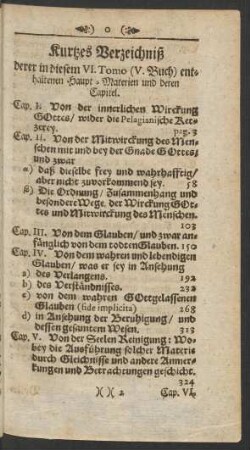 o
Kurtzes Verzeichniß
derer in diesem VI. Tomo (V. Buch) ent-
haltenen Haupt-Materien und deren
Capitel.
Cap. I. Von der innerlichen Wirckung
GOttes / wider die Pelagianische Ket-
zerey. pag. 3
Cap. II. Von der Mitwirckung des Men-
schen mit und bey der Gnade GOttes;
und zwar
a) daß dieselbe frey und wahrhafftig /
aber nicht zuvorkommend sey. 58
ß) Die Ordnung / Zusammenhang und
besondere Wege, der Wirckung GOt-
tes und Mitwirckung des Menschen.
103
Cap. III. Von dem Glauben / und zwar an-
fänglich von dem todten Glauben. 150
Cap. IV. Von dem wahren und lebendigen
Glauben / was er sey in Ansehung
a) des Verlangens. 192
b) des Verständnisses. 232
c) von dem wahren GOttgelassenen
Glauben (fide implicita) 268
d) in Ansehung der Beruhigung / und
dessen gesamtem Wesen. 313
Cap. V. Von der Seelen Reinigung: Wo-
bey die Ausführung solcher Materie
durch Gleichnisse und andere Anmer-
ckungen und Betrachtungen geschicht.
324
)( )( 2 Cap. VI.